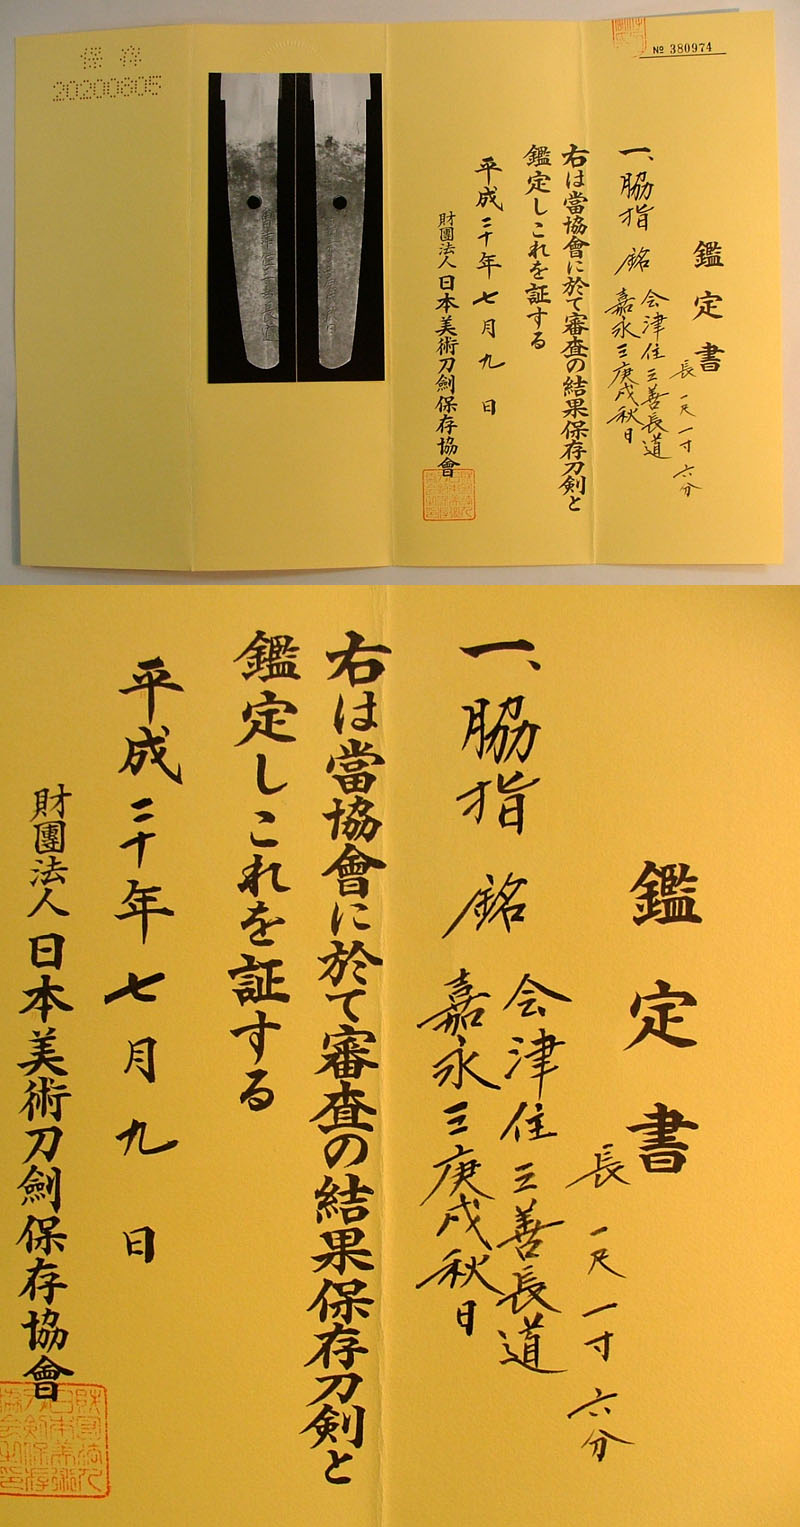 保存
20200805
№ 380974
鑑定書
長 一尺一寸六分
一、脇指 銘 会津住三善長道
嘉永三庚戌秋日
右は當協會に於て審査の結果保存刀剣と
鑑定しこれを証する
平成二十年七月九日
財團法人日本美術刀劍保存協會
鑑定書
長 一尺一寸六分
一、脇指 銘 会津住三善長道
嘉永三庚戌秋日
右は當協會に於て審査の結果保存刀剣と
鑑定しこれを証する
平成二十年七月九日
財團法人日本美術刀劍保存協會